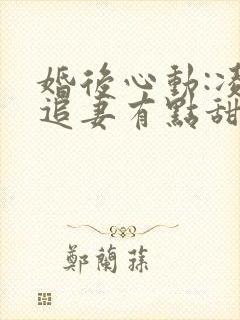 婚後心動:凌
追妻有點甜
鄭蘭蓀